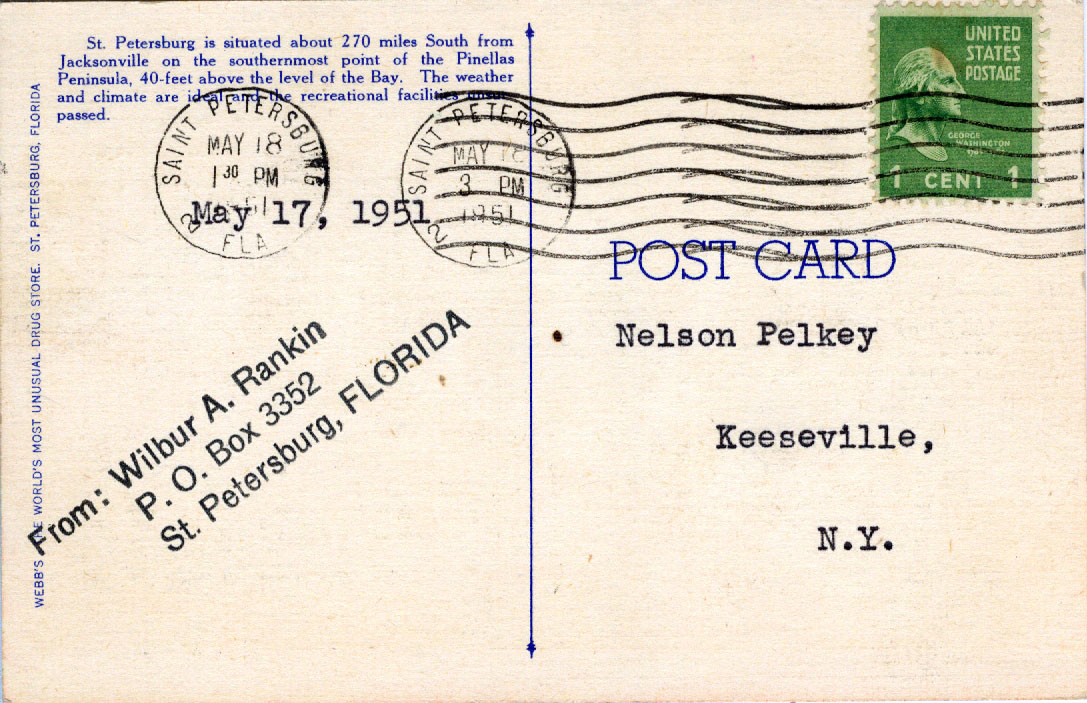 St. Petersburg is situated about 270 miles South from
Jacksonville on the southernmost point of the Pinellas
Peninsula, 40-feet above the level of the Bay. The weather
and climate are ideal and the recreational facilities unsur-
passed.
WEBB'S THE WORLD'S MOST UNUSUAL DRUG STORE. ST. PETERSBURG, FLORIDA
SAINT PETERSBURG
MAY 18
1 30 PM
FLA
2
SAINT PETERSBURG
MAY 18
3 PM
1951
FLA
2
May 17, 1951
From: Wilbur A. Rankin
P. O. Box 3352
St. Petersburg, FLORIDA
UNITED
STATES
POSTAGE
GEORGE
WASHINGTON
1 CENT 1
POST CARD
Nelson Pelkey
Keeseville,
N.Y.